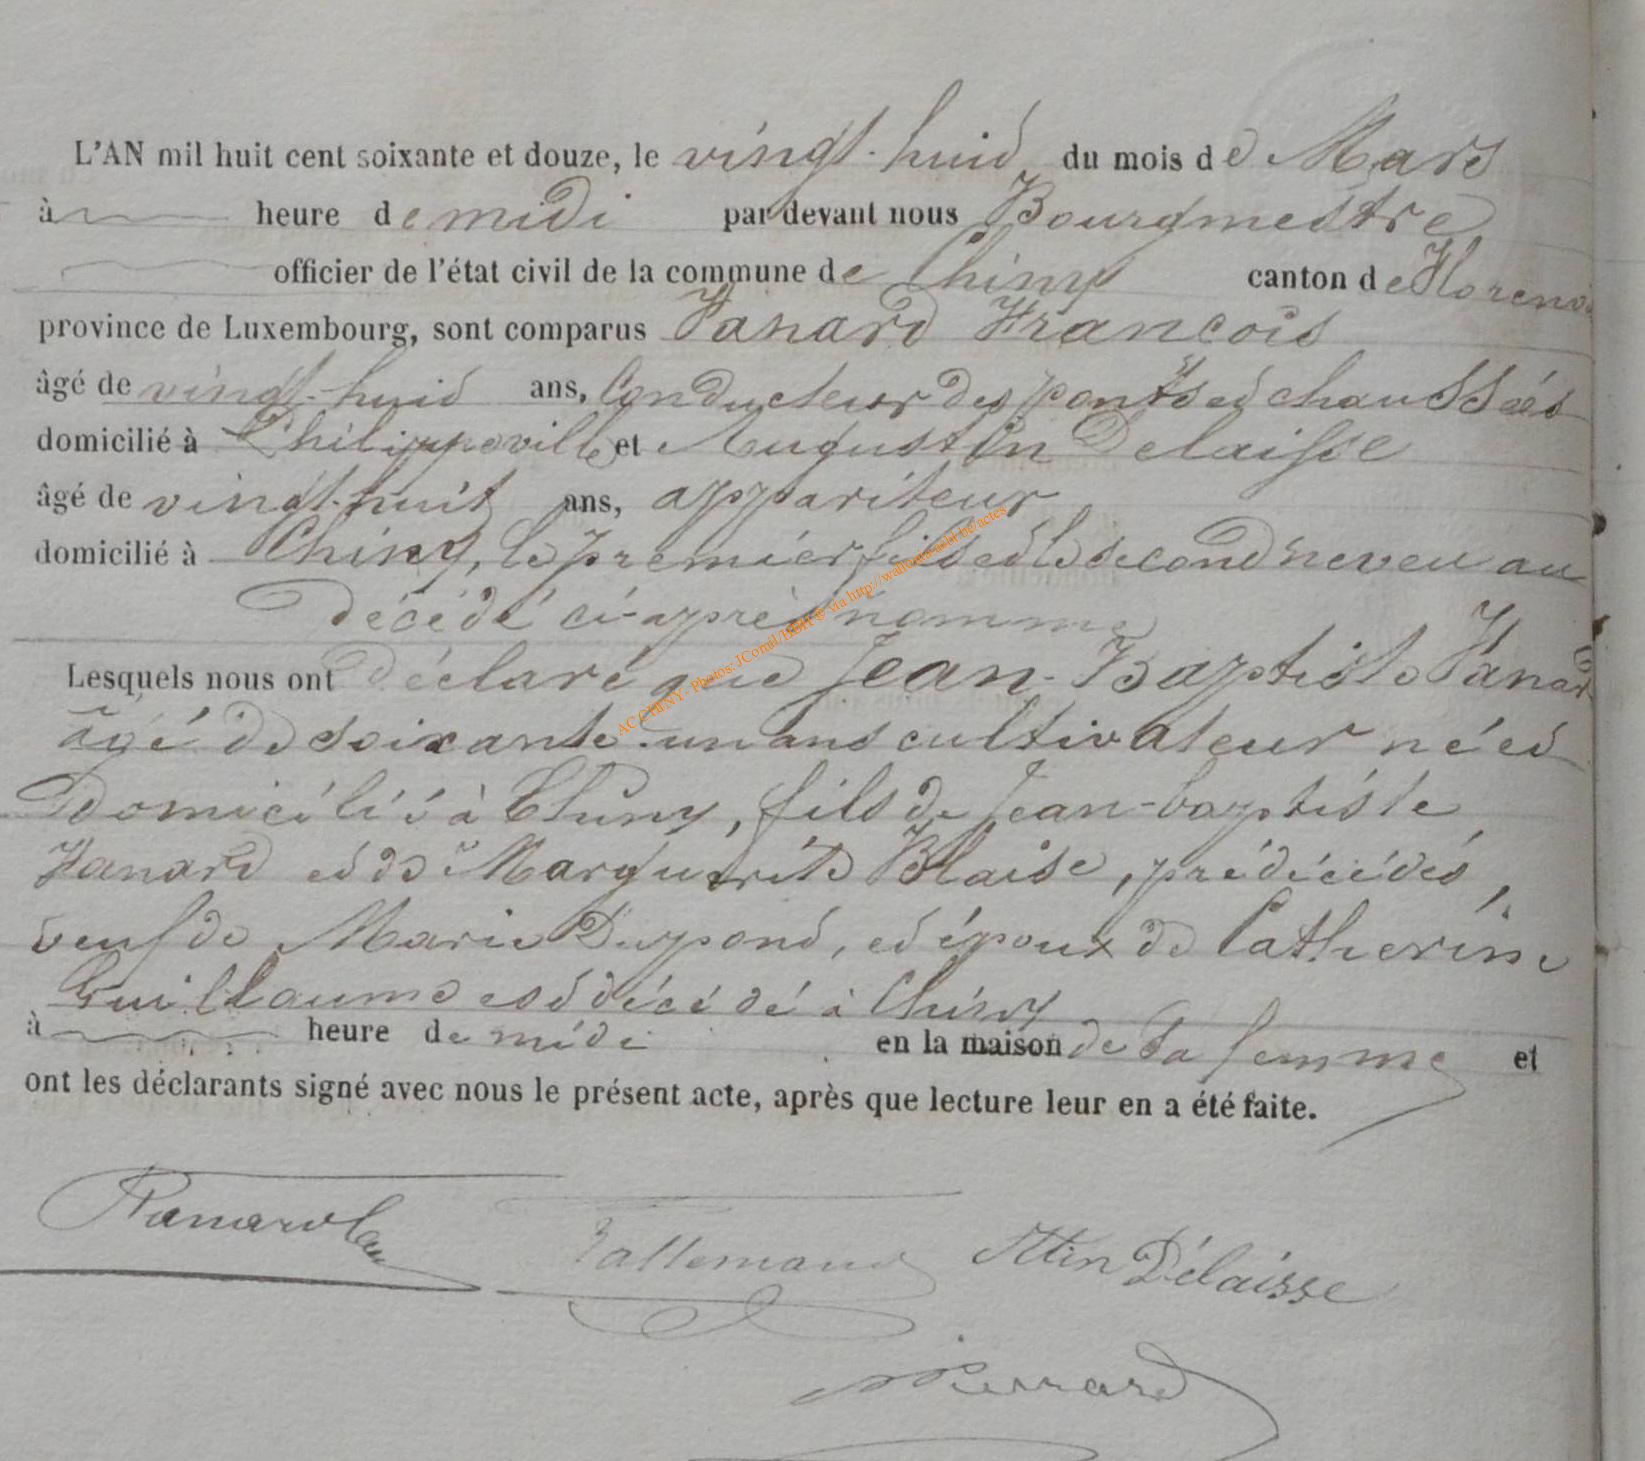 L'AN mil huit cent soixante et douze, le vingt-huit du mois de Mars
à heure de midi par devant nous Bourgmestre
officier de l'état civil de la commune de Chiny canton de Floren
province de Luxembourg, sont comparus Panard François
âgé de vingt-huit ans, Conducteur des ponts et chaussées
domicilié à Philippeville et Augustin Delaisse
âgé de vingt-huit ans, appariteur
domicilié à Chiny, le premier fils et le second neveu au
décédé ci-après nommé
Lesquels nous ont déclaré que Jean-Baptiste Panard
âgé de soixante-un ans cultivateur né et
domicilié à Chiny, fils de Jean-baptiste
Panard et de Marguerite Blaise, prédécédés,
veuf de Marie Dupont, et époux de Catherine
Guillaume est décédé à Chiny
à heure de midi en la maison de sa femme et
ont les déclarants signé avec nous le présent acte, après que lecture leur en a été faite.
AC CHINY - Photos: via http://wallonia-asbl.be/actes
Panard
Delaisse